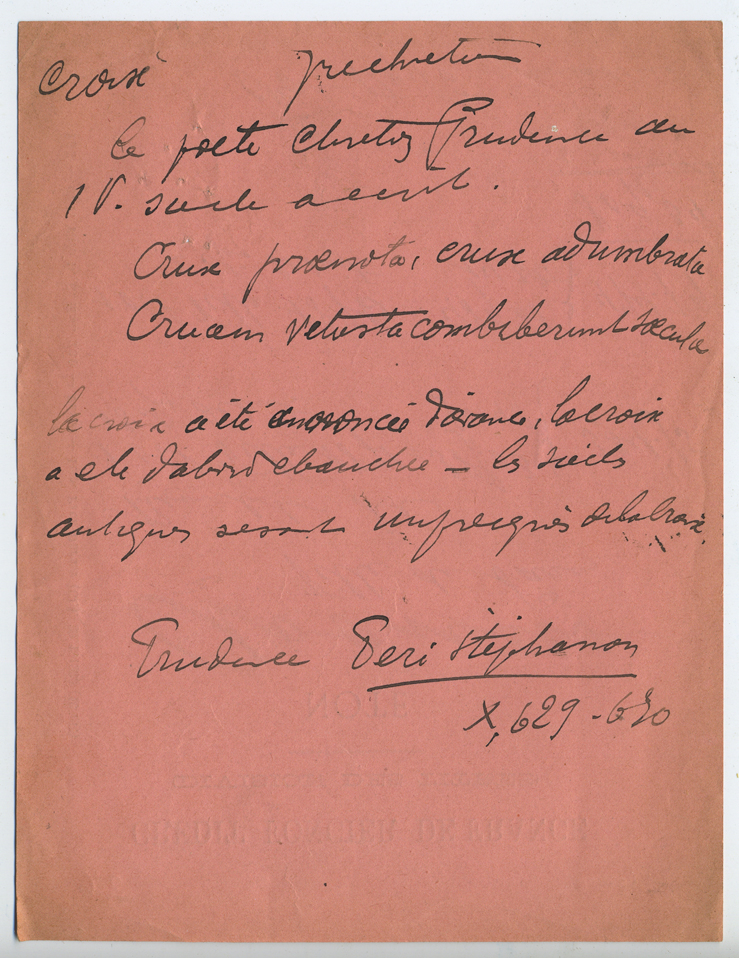 Croix prechretien
le poete chretien Prudence au
IV. siecle a ecrit.
Crux praenota, crux adumbrata
Crucem vetusta combiberunt saecula
la croix a été annoncée d'avance, la croix
a ete d'abord ebauchée — les siècles
antiques se sont impregnés de la croix.
Prudence Peri Stéphanon
X, 629-630